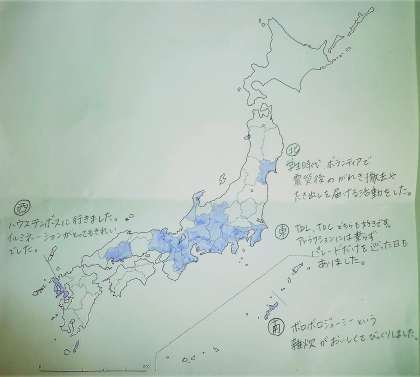 北
学生時代 ボランティアで
震災後のがれき撤去や
たき出しを届ける活動をした。
西
ハウステンボスに行きました。
イルミネーションがとってもきれい
でした。
東
TDL、TDS どちらも好きです。
アトラクションには乗らず
パレードだけを巡った日も
ありました。
南
ボロボロジューシーという
雑炊がおいしくてびっくりしました。